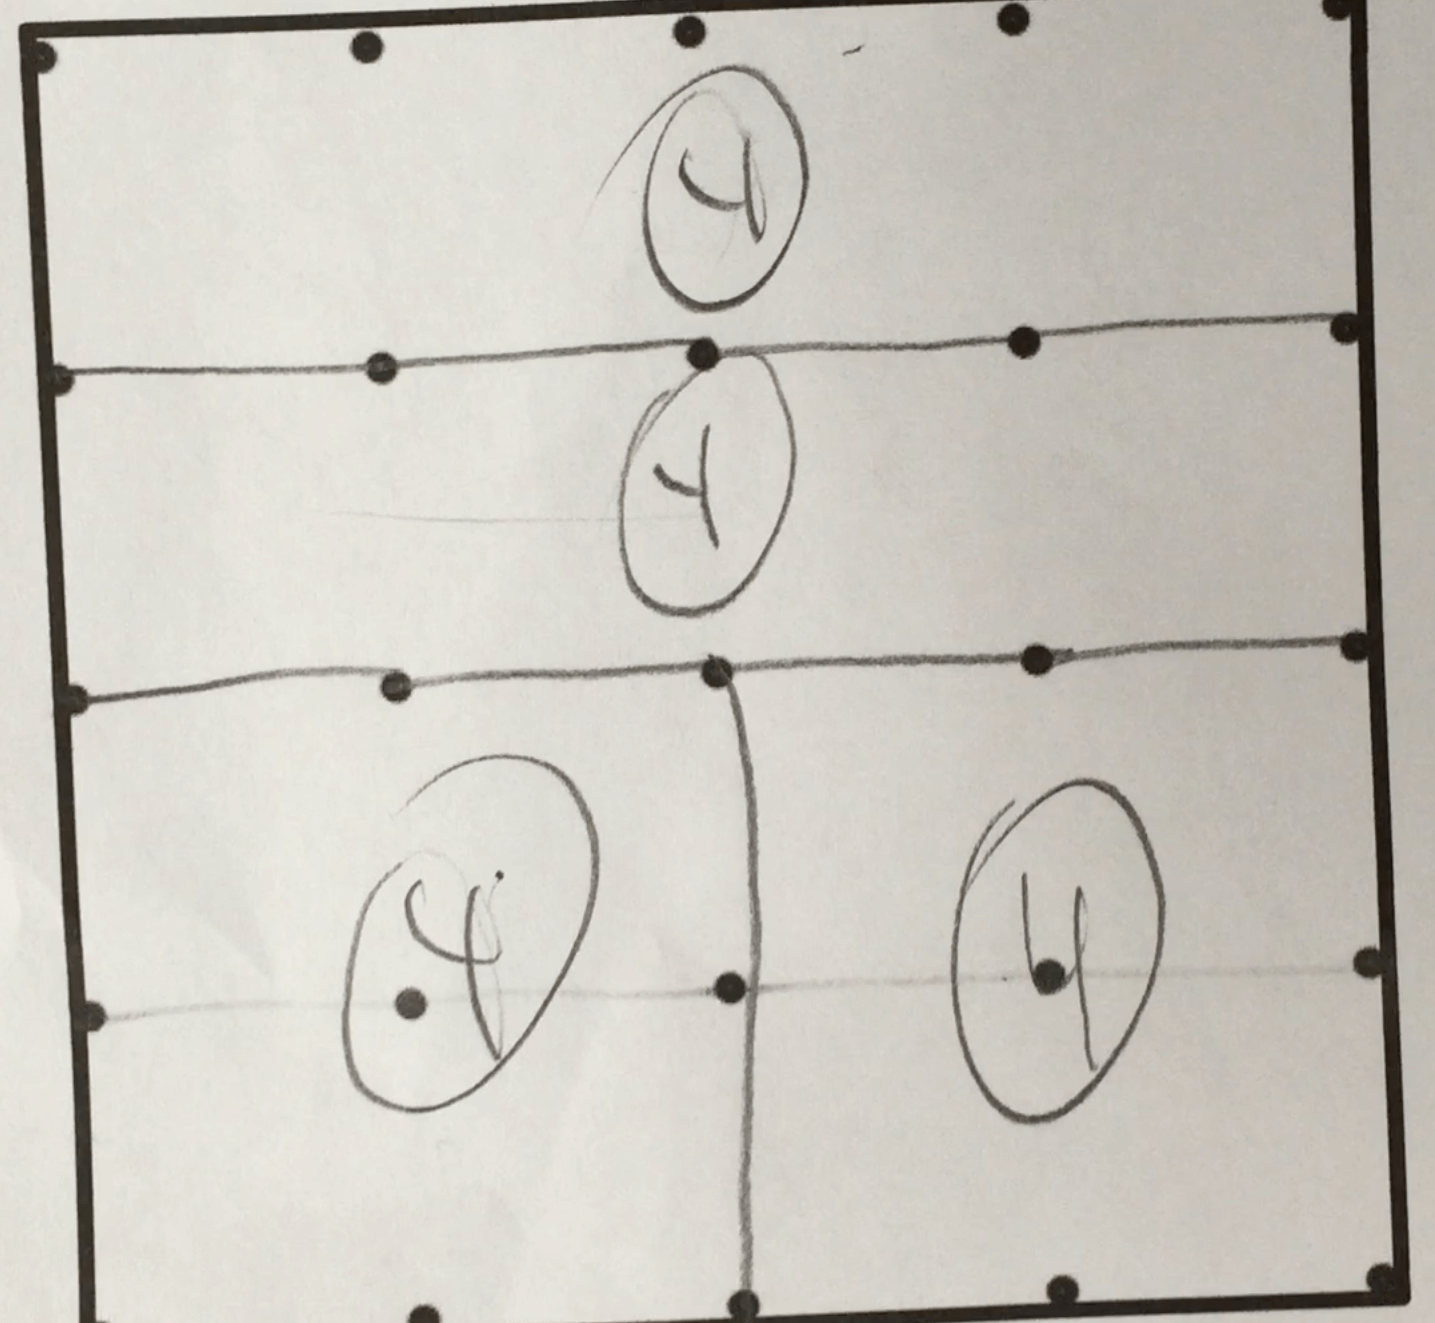 4
4
4 4